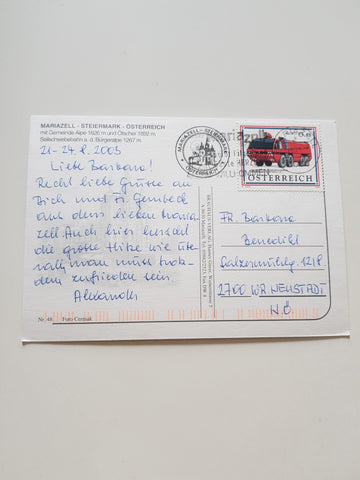 MARIAZELL - STEIERMARK - ÖSTERREICH
mit Gemeinde Alpe 1626 m und Ötscher 1892 m
Seilschwebebahn a. d. Bürgeralpe 1267 m
21-24.8.2003
Liebe Barbara!
Recht liebe Grüße an
Dich und
aus dem lieben Maria-
zell Auch hier herrscht
die große Hitze wie üb-
rall, man muß trotz-
dem zufrieden sein
Alexander
Nr. 48 Foto Cermak
MARIAZELL
ÖSTERREICH
Fr. Barbara
Benedikt
2700 WR NEUSTADT
NÖ